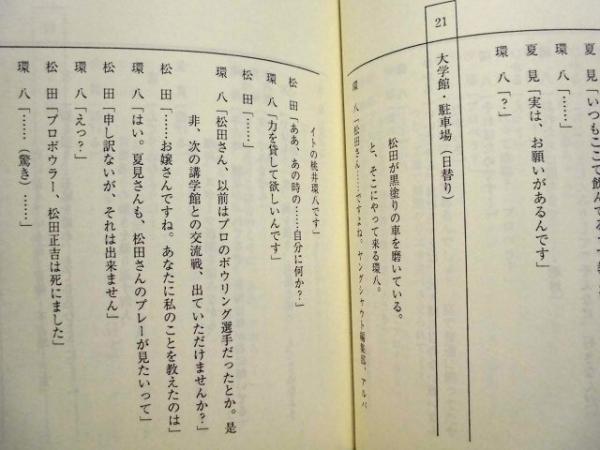 夏見「いつもここで飲んでる
環八「……」
夏見「実は、お願いがあるんです」
環八「？」
21 大学館・駐車場（日替り）
松田が黒塗りの車を磨いている。
と、そこにやって来る環八。
環八「松田さん……ですよね。ヤングシャウト編集部、アルバ
イトの桃井環八です」
松田「ああ、あの時の……自分に何か？」
環八「力を貸して欲しいんです」
松田「……」
環八「松田さん、以前はプロのボウリング選手だったとか。是
非、次の講学館との交流戦、出ていただけませんか？」
松田「……お嬢さんですね。あなたに私のことを教えたのは」
環八「はい。夏見さんも、松田さんのプレーが見たいって」
松田「申し訳ないが、それは出来ません」
環八「えっ？」
松田「プロボウラー、松田正吉は死にました」
環八「……（驚き）……」